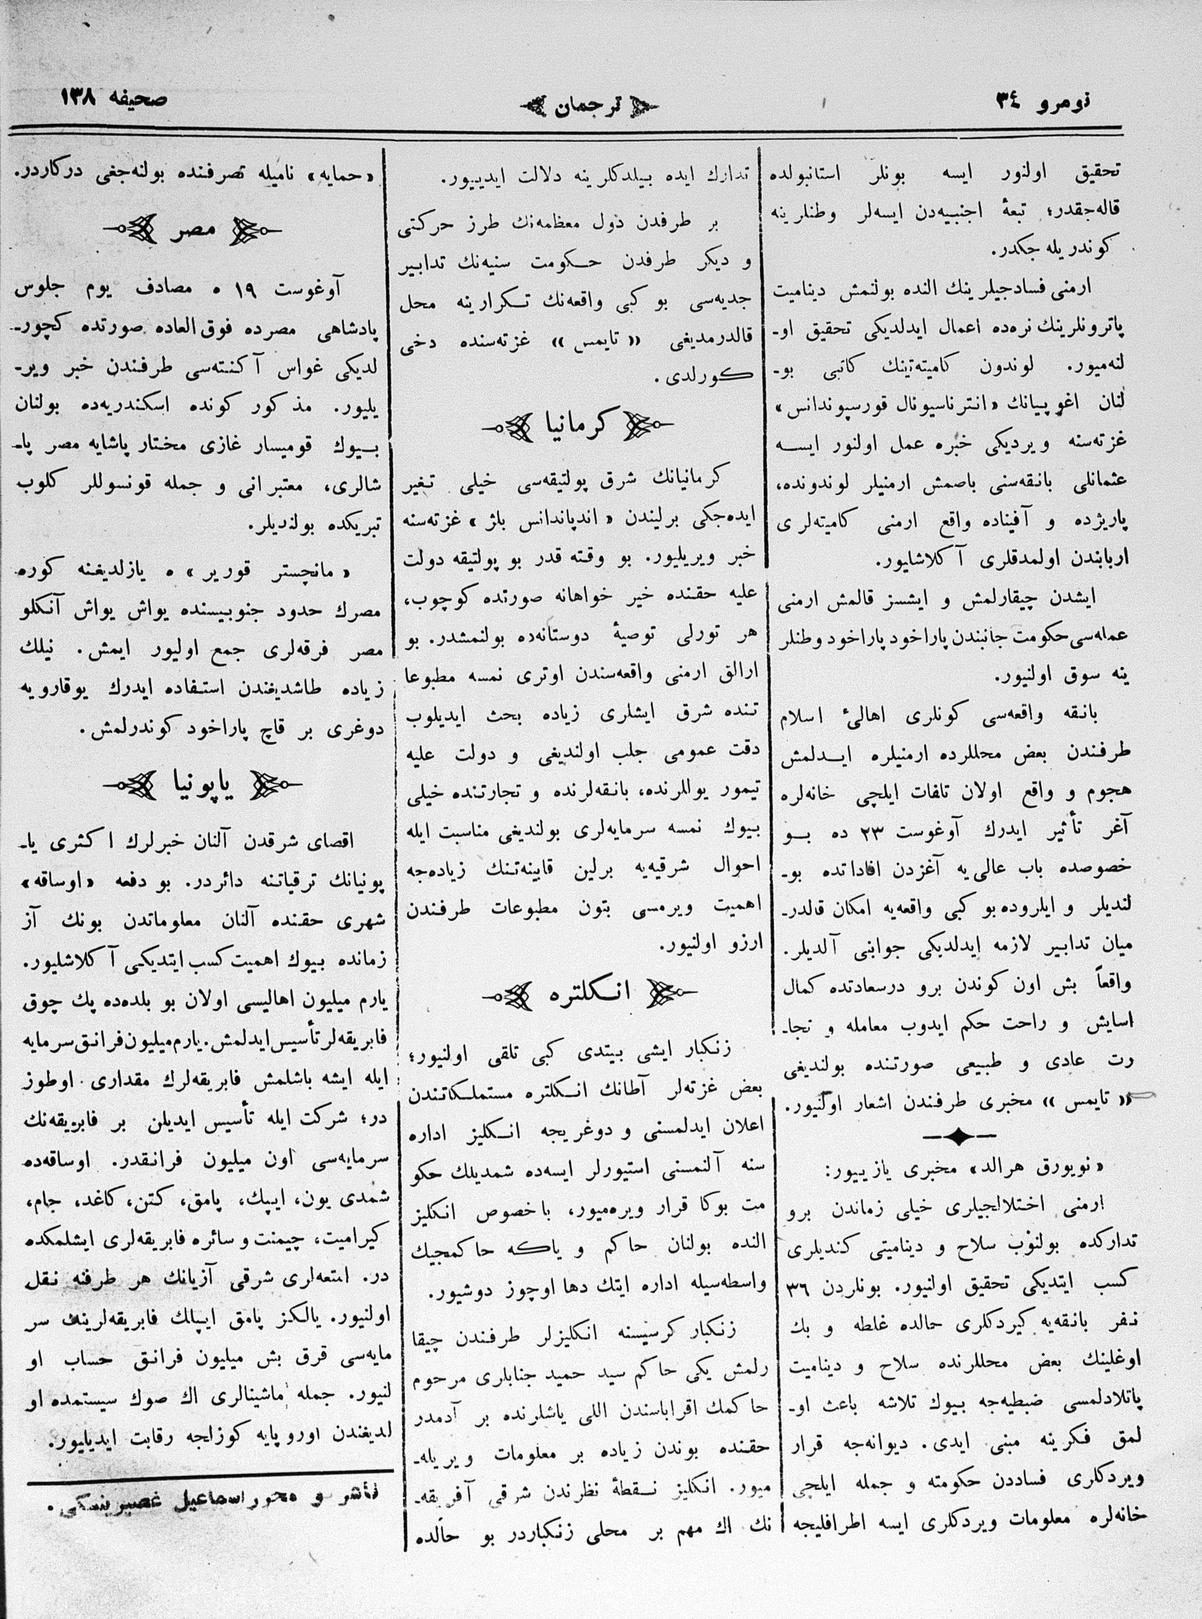 نومرو ٣٤
ترجمان
صحيفه ١٣٨
تحقيق اولنور ايسه بونلر استانبولده
قاله‌جقدر؛ تبعهٔ اجنبيه‌دن ايسه‌لر وطنلرينه
كوندريله جكدر.
ارمنى فسادجيلرينك النده بولنمش ديناميت
پاترونلرينك نره‌ده اعمال ايدلديكى تحقيق او-
لنه‌ميور. لوندون كاميته‌تينك كاتبى بو-
لنان اغوپيانك «انترناسيونال قورسپوندانس»
غزته‌سنه ويرديكى خبره عمل اولنور ايسه
عثمانلى بانقه‌سنى باصمش ارمنيلر لوندونده،
پاريژده و آفيناده واقع ارمنى كاميته‌لرى
اربابندن اولمدقلرى آكلاشليور.
ايشدن چيقارلمش و ايشسز قالمش ارمنى
عمله‌سى حكومت جانبندن پاراخود پاراخود وطنلر
ينه سوق اولنيور.
بانقه واقعه‌سى كونلرى اهالئ اسلام
طرفندن بعض محللرده ارمنيلره ايدلمش
هجوم و واقع اولان تلفات ايلچى خانه‌لره
آغر تأثير ايدرك آوغوست ٢٣ ده بو
خصوصده باب عالى‌يه آغزدن افاداتده بو-
لنديلر و ايلروده بو كبى واقعه‌يه امكان قالدر-
ميان تدابير لازمه ايدلديكى جوابنى آلديلر.
واقعاً بش اون كوندن برو درسعادتده كمال
اسايش و راحت حكم ايدوب معامله و تجا-
رت عادى و طبيعى صورتنده بولنديغى
«تايمس» مخبرى طرفندن اشعار اولنيور.
«نويورق هرالد» مخبرى يازييور:
ارمنى اختلالجيلرى خيلى زماندن برو
تداركده بولنوب سلاح و ديناميتى كنديلرى
كسب ايتديكى تحقيق اولنيور. بونلردن ٣٦
نفر بانقه‌يه كيردكلرى حالده غلطه و بك
اوغلينك بعض محللرنده سلاح و ديناميت
پاتلادلمسى ضبطيه‌جه بيوك تلاشه باعث او-
لمق فكرينه مبنى ايدى. ديوانه‌جه قرار
ويردكلرى فساددن حكومته و جمله ايلچى
خانه‌لره معلومات ويردكلرى ايسه اطرافليجه
تدارك ايده بيلدكلرينه دلالت ايدييور.
بر طرفدن دول معظمه‌نك طرز حركتى
و ديكر طرفدن حكومت سنيه‌نك تدابير
جديه‌سى بو كبى واقعه‌نك تكرارينه محل
قالدرمديغى «تايمس» غزته‌سنده دخى
كورلدى.
كرمانيا
كرمانيانك شرق پولتيقه‌سى خيلى تغير
ايده‌جكى برليندن «اندپاندانس بلژ» غزته‌سنه
خبر ويريليور. بو وقته قدر بو پولتيقه دولت
عليه حقنده خير خواهانه صورتده كوچوب،
هر تورلى توصيهٔ دوستانه‌ده بولنمشدر. بو
ارالق ارمنى واقعه‌سندن اوترى نمسه مطبوعا
تنده شرق ايشلرى زياده بحث ايديلوب
دقت عمومى جلب اولنديغى و دولت عليه
تيمور يوللرنده، بانقه‌لرنده و تجارتنده خيلى
بيوك نمسه سرمايه‌لرى بولنديغى مناسبت ايله
احوال شرقيه‌يه برلين قابينه‌تنك زياده‌جه
اهميت ويرمسى بتون مطبوعات طرفندن
ارزو اولنيور.
انكلتره
زنكبار ايشى بيتدى كبى تلقى اولنيور؛
بعض غزته‌لر آطانك انكلتره مستملكاتندن
اعلان ايدلمسنى و دوغريجه انكليز اداره
سنه آلنمسنى استيورلر ايسه‌ده شمديلك حكو
مت بوكا قرار ويره‌ميور، باخصوص انكليز
النده بولنان حاكم و ياكه حاكمجيك
واسطه‌سيله اداره ايتك دها اوچوز دوشيور.
زنكبار كرسيسنه انكليزلر طرفندن چيقا
رلمش يكى حاكم سيد حميد جنابلرى مرحوم
حاكمك اقرباسندن اللى ياشلرنده بر آدمدر
حقنده بوندن زياده بر معلومات ويريله-
ميور. انكليز نقطهٔ نظرندن شرقى آفريقه-
نك اك مهم بر محلى زنكباردر بو حالده
«حمايه» ناميله تصرفنده بولنه‌جغى دركاردر.
مصر
آوغوست ١٩ ه مصادف يوم جلوس
پادشاهى مصرده فوق العاده صورتده كچور-
لديكى غواس آكنته‌سى طرفندن خبر وير-
يليور. مذكور كونده اسكندريه‌ده بولنان
بيوك قوميسار غازى مختار پاشايه مصر پا-
شالرى، معتبرانى و جمله قونسوللر كلوب
تبريكده بولنديلر.
«مانچستر قورير» ه يازلديغنه كوره
مصرك حدود جنوبيسنده يواش يواش آنكلو
مصر فرقه‌لرى جمع اوليور ايمش. نيلك
زياده طاشديغندن استفاده ايدرك يوقارويه
دوغرى بر قاچ پاراخود كوندرلمش.
ياپونيا
اقصاى شرقدن آلنان خبرلرك اكثرى يا-
پونيانك ترقياتنه دائردر. بو دفعه «اوساقه»
شهرى حقنده آلنان معلوماتدن بونك آز
زمانده بيوك اهميت كسب ايتديكى آكلاشليور.
يارم ميليون اهاليسى اولان بو بلده‌ده پك چوق
فابريقه‌لر تأسيس ايدلمش. يارم ميليون فرانق سرمايه
ايله ايشه باشلمش فابريقه‌لرك مقدارى اوطوز
در؛ شركت ايله تأسيس ايديلن بر فابريقه‌نك
سرمايه‌سى اون ميليون فرانقدر. اوساقه‌ده
شمدى يون، ايپك، پامق، كتن، كاغد، جام،
كيراميت، چيمنت و سائره فابريقه‌لرى ايشلمكده
در. امتعه‌لرى شرقى آزيانك هر طرفنه نقل
اولنيور. يالكز پامق ايپلك فابريقه‌لرينك سر
مايه‌سى قرق بش ميليون فرانق حساب او
لنيور. جمله ماشينالرى اك صوك سيستمده او
لديغندن اوروپايه كوزلجه رقابت ايديليور.
ناشر و محرر اسماعيل غصپرينسكى.